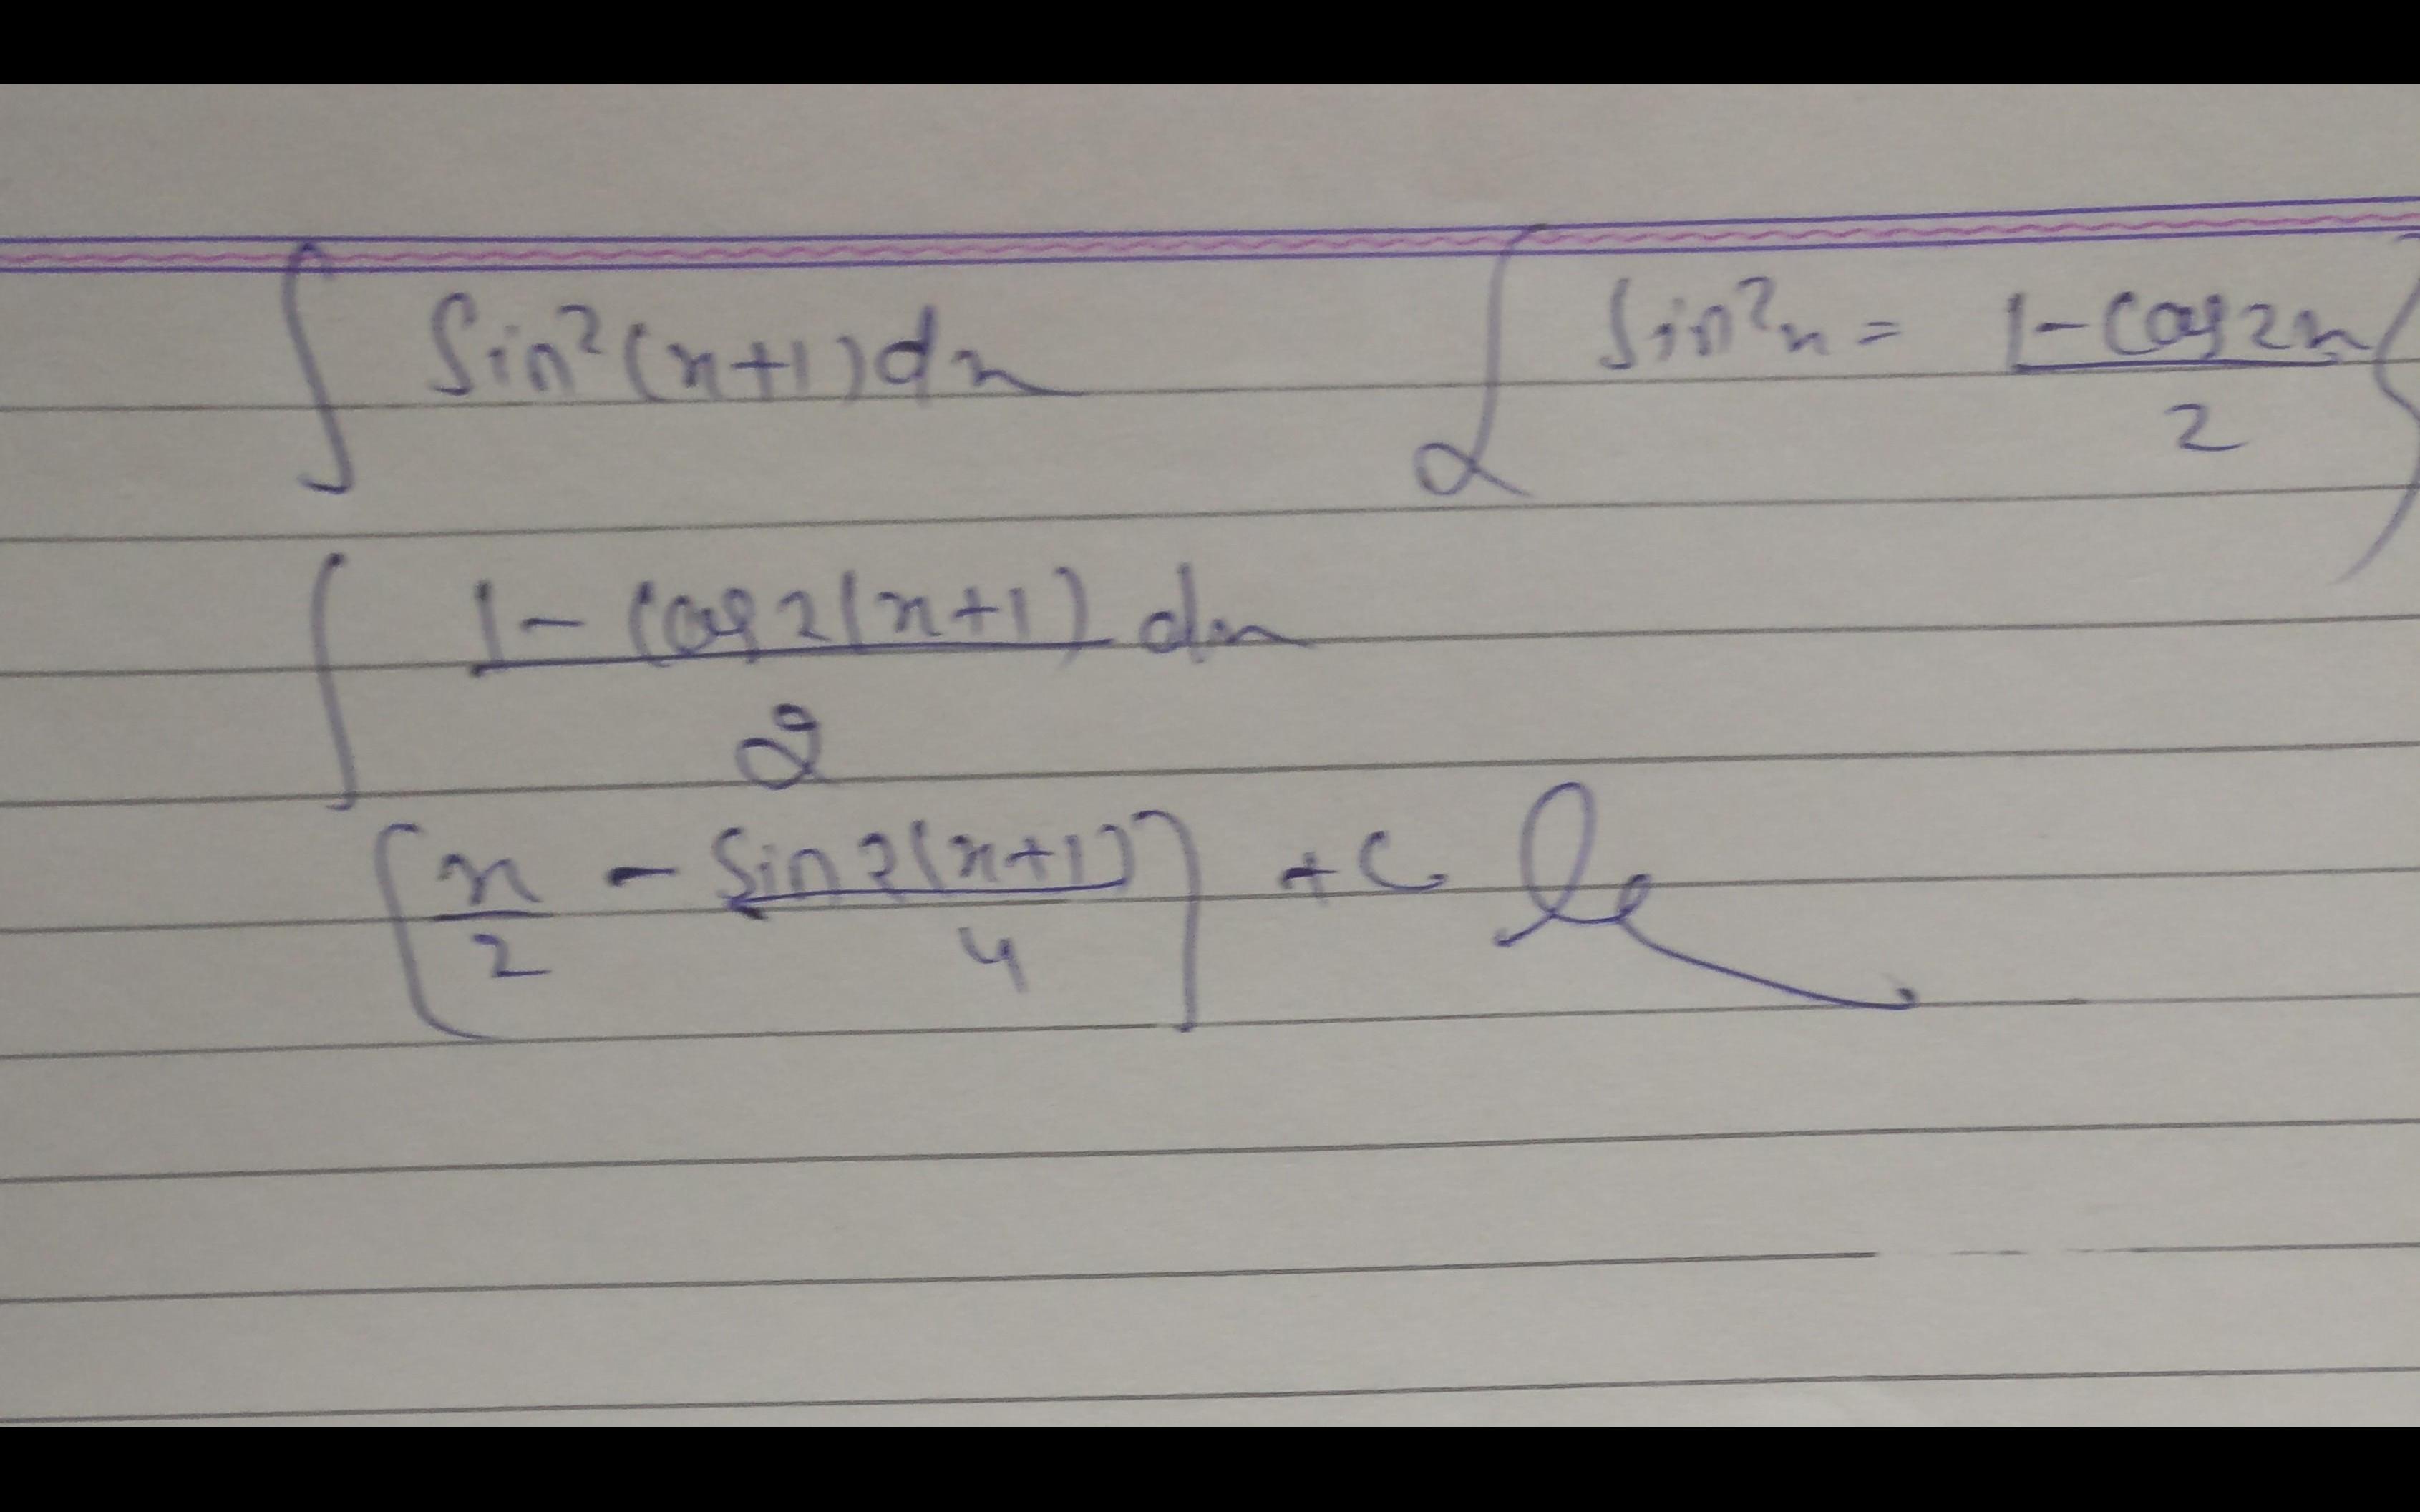 ∫ Sin²(x+1)dx { Sin²x = (1-Cos2x)/2 }
∫ (1-Cos2(x+1))/2 dx
[x/2 - Sin2(x+1)/4] + C